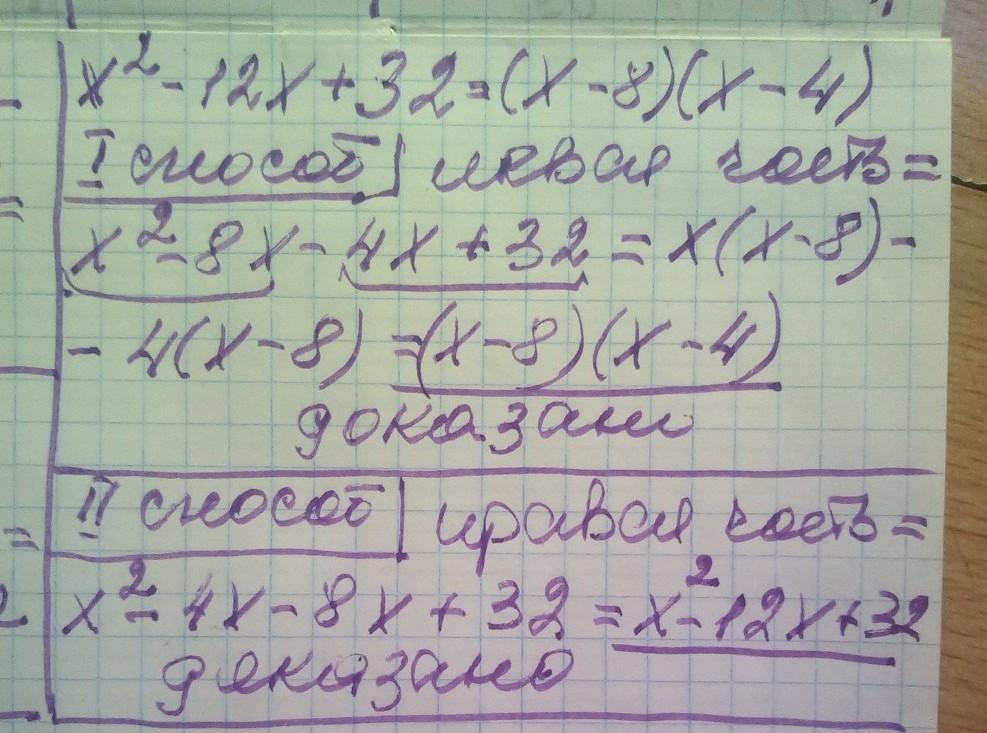 x² - 12x + 32 = (x - 8)(x - 4)
I способ | левая часть =
x² - 8x - 4x + 32 = x(x - 8) -
- 4(x - 8) = (x - 8)(x - 4)
доказали
II способ | правая часть =
x² - 4x - 8x + 32 = x² - 12x + 32
доказано